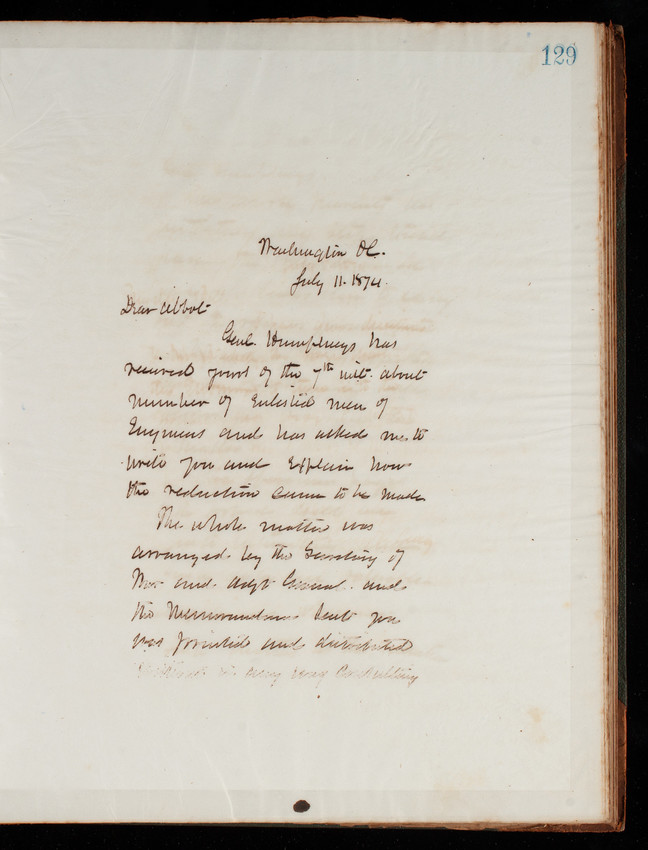 129
Washington DC.
July 11. 1874.
Dear Abbot
Genl. Humphreys has
received yours of the 7th inst. about
number of Enlisted men of
Engineers and has asked me to
write you and Explain how
the reduction came to be made
The whole matter was
arranged by the Secretary of
War and Adjt General and
the Memorandum sent you
was printed and distributed
without in any way Consulting